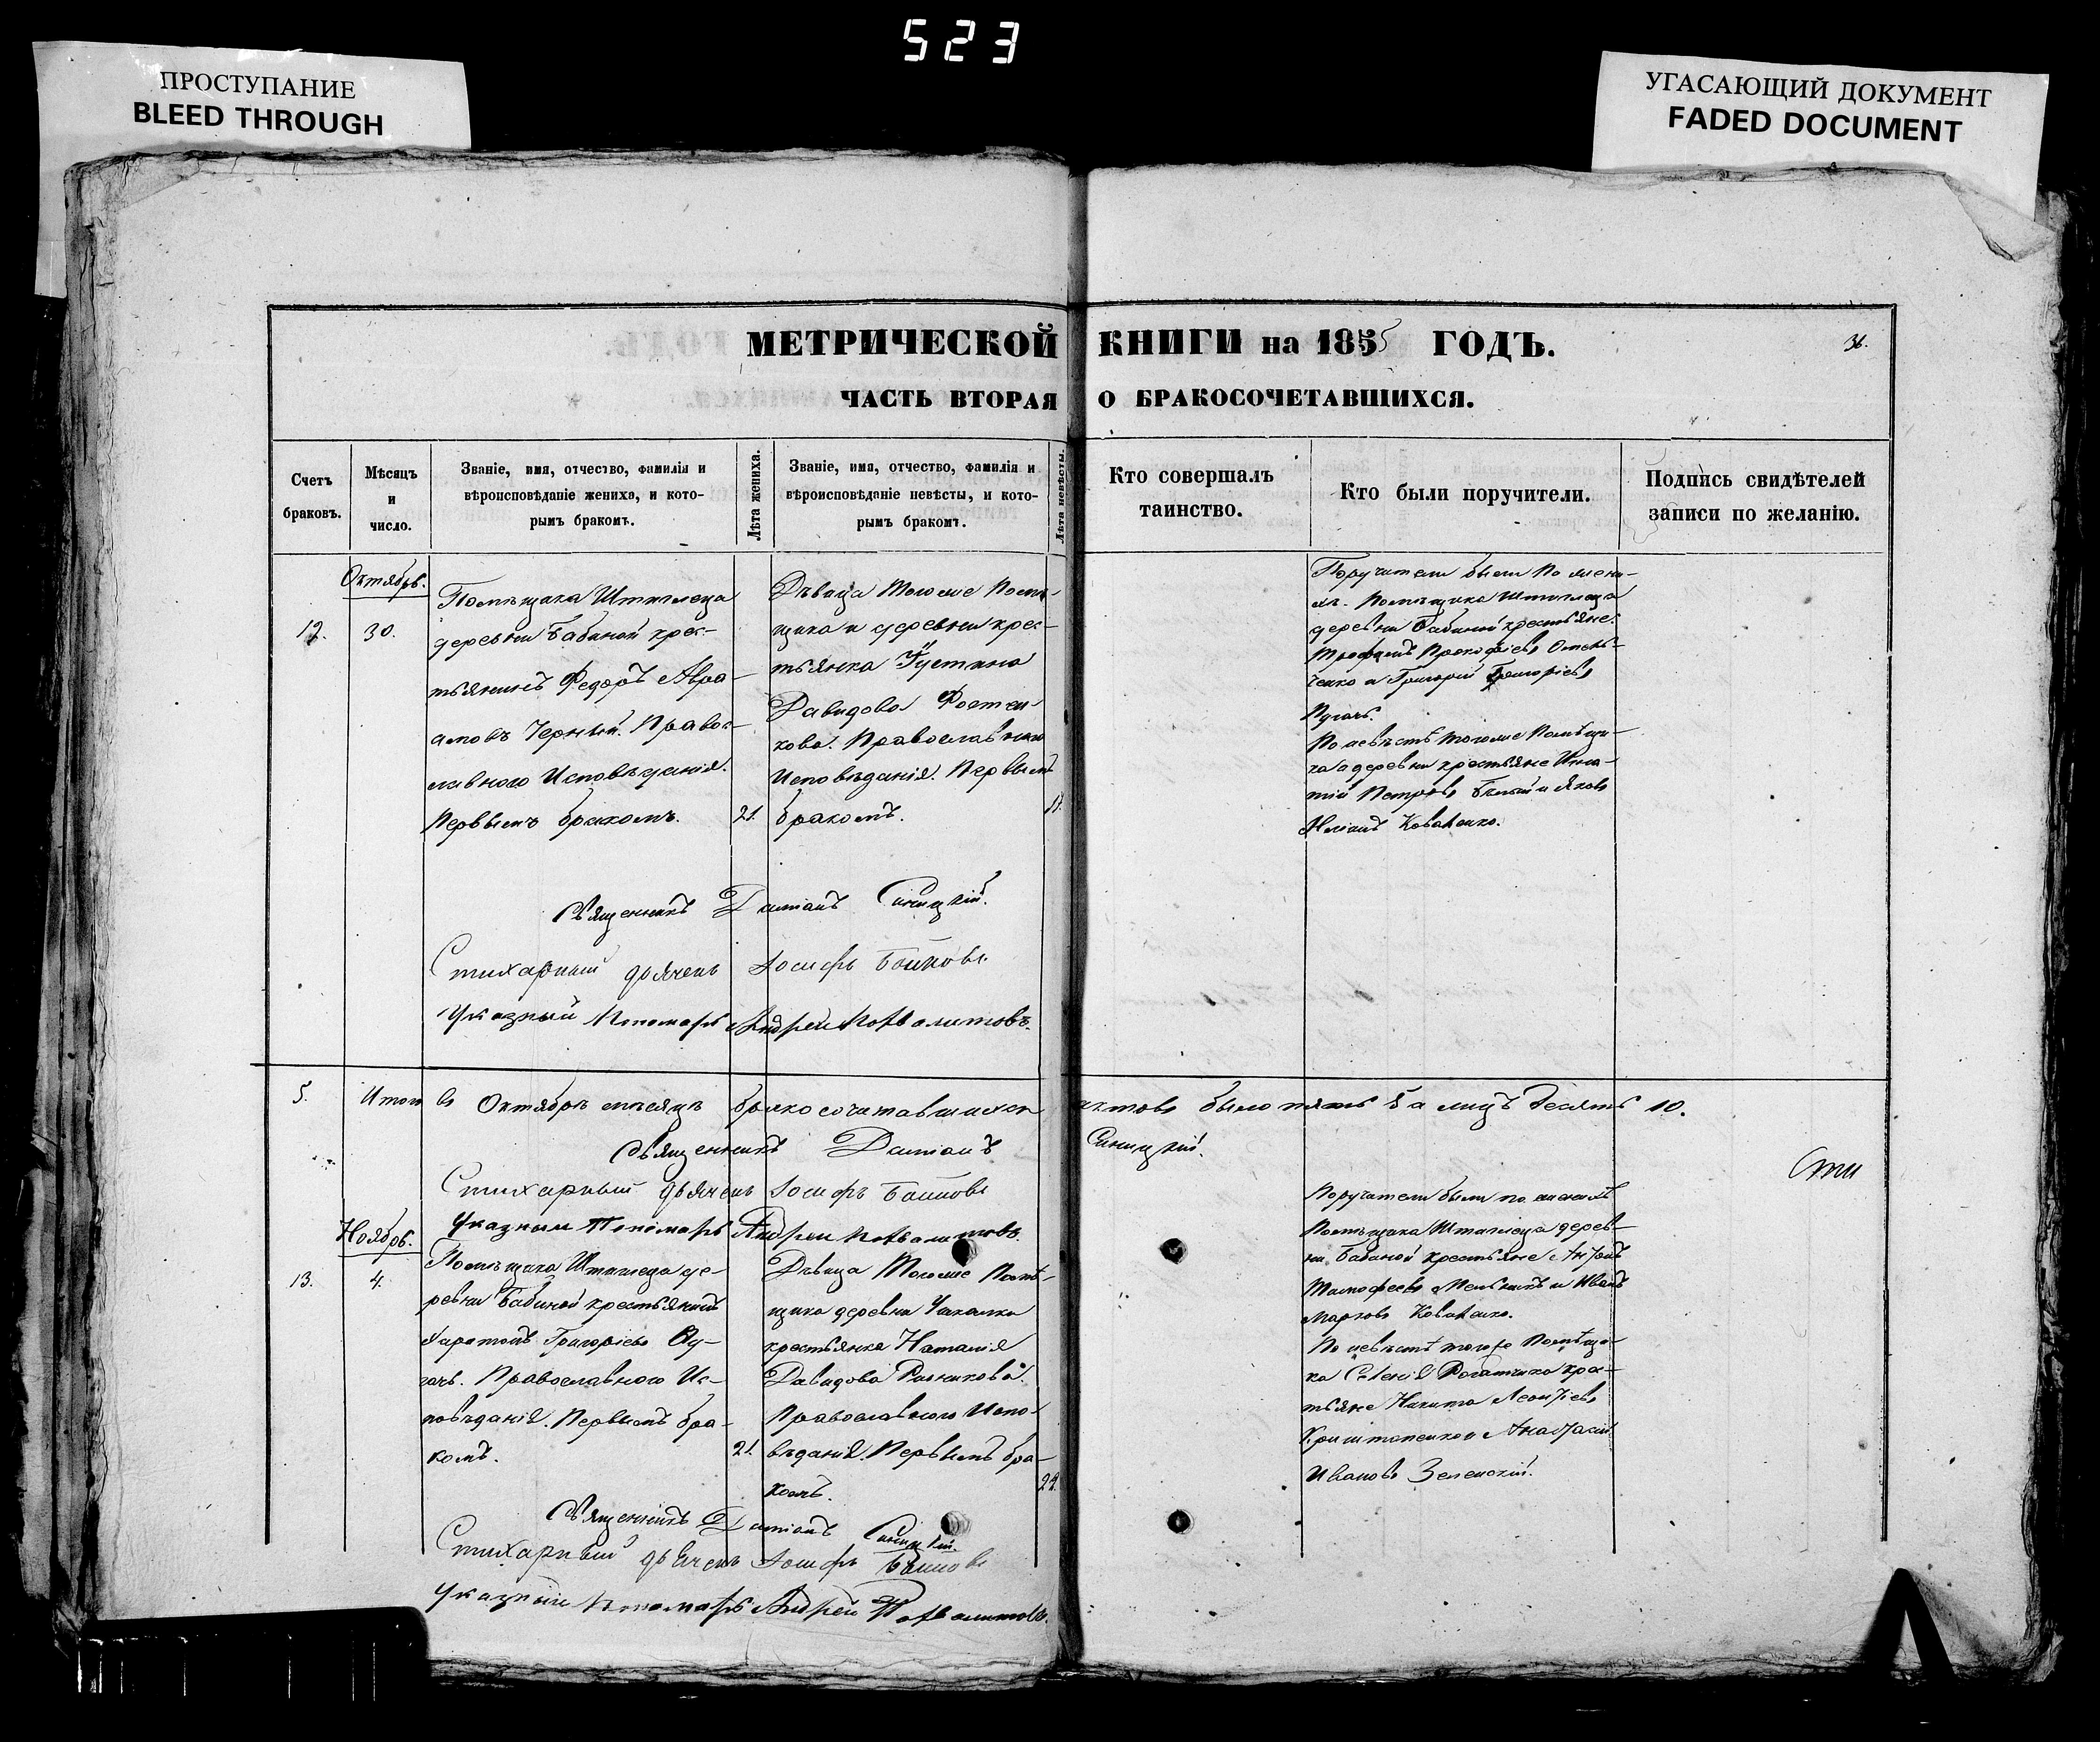 523
ПРОСТУПАНИЕ
BLEED THROUGH
УГАСАЮЩИЙ ДОКУМЕНТ
FADED DOCUMENT
МЕТРИЧЕСКОЙ КНИГИ на 1855 ГОДЪ.
ЧАСТЬ ВТОРАЯ О БРАКОСОЧЕТАВШИХСЯ.
Счетъ
браковъ.
Мѣсяцъ
и
число.
Званіе, имя, отчество, фамилія и
вѣроисповѣданіе жениха, и кото-
рымъ бракомъ.
Лѣта жениха.
Званіе, имя, отчество, фамилія и
вѣроисповѣданіе невѣсты, и кото-
рымъ бракомъ.
Лѣта невѣсты.
Кто совершалъ
таинство.
Кто были поручители.
Подпись свидѣтелей
записи по желанію.
Октябрь.
12.
30.
Помѣщика Штиглеца
деревни Бабиной крес-
тьянинъ Федоръ Авра-
амовъ Черный. Правос-
лавного Исповѣданія.
Первымъ бракомъ.
21.
Дѣвица Тогоже Помѣ-
щика и деревни крес-
тьянка Густина
Давидова
Православного
Исповѣданія. Первымъ
бракомъ.
Поручители были По жени-
хѣ. Помѣщика Штиглеца
деревни Бабиной крестьяне:
Прокофіевъ Омель-
ченко и Григорій Григоріевъ
Пугачъ.
По невѣстѣ тогоже Помѣщи-
ка и деревни крестьяне Игна-
тій Петровъ Бѣлый и Яковъ
Коваленко.
Священникъ Даміанъ Синицкій.
Стихарный дьячекъ Іосифъ Бойковъ.
Указный Пономарь Андрей
5.
Итого въ Октябрѣ мѣсяцѣ бракосочитавшихся актовъ было пять 5 а лицъ десять 10.
Священникъ Даміанъ Синицкій.
Стихарный дьячекъ Іосифъ Бойковъ
Указный Пономарь Андрей
Ноябрь.
13.
4.
Помѣщика Штиглеца де-
ревни Бабиной крестьянинъ
Харитонъ Григорьевъ Пу-
гачъ. Православного Ис-
повѣданія. Первымъ бра-
комъ.
21.
Дѣвица Тогоже Помѣ-
щика деревни Ушкалки
крестьянка Наталія
Давидова
Православного Испо-
вѣданія. Первымъ бра-
комъ.
22.
Поручители были по женихѣ
Помѣщика Штиглеца дерев-
ни Бабиной крестьяне Антонъ
Тимофеевъ Мельникъ и Иванъ
Марковъ Коваленко.
По невѣстѣ того же Помѣщи-
ка Селенія Рогачика крес-
тьяне Никита Леонтіевъ
Анастасій
Ивановъ Зеленскій.
Священникъ Даміанъ Синицкій.
Стихарный дьячекъ Іосифъ Бойковъ
Указный Пономарь Андрей